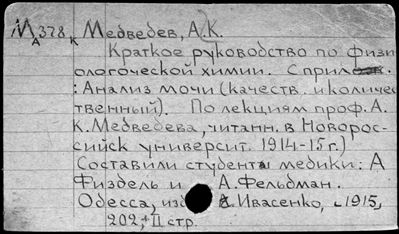 М А 378 к Медведев, А.К.
Краткое руководство по физи
ологоческой химии. С прилож.
: Анализ мочи (качеств. и количе
твенный). По лекциям проф. А.
К. Медведева, читанн. в Новорос-
сийск университ. 1914-15 г.)
Составили студента медики: А
Физдель и А. Фельдман.
Одесса, изд А. Ивасенко, ⌞1915,
202,+II стр.